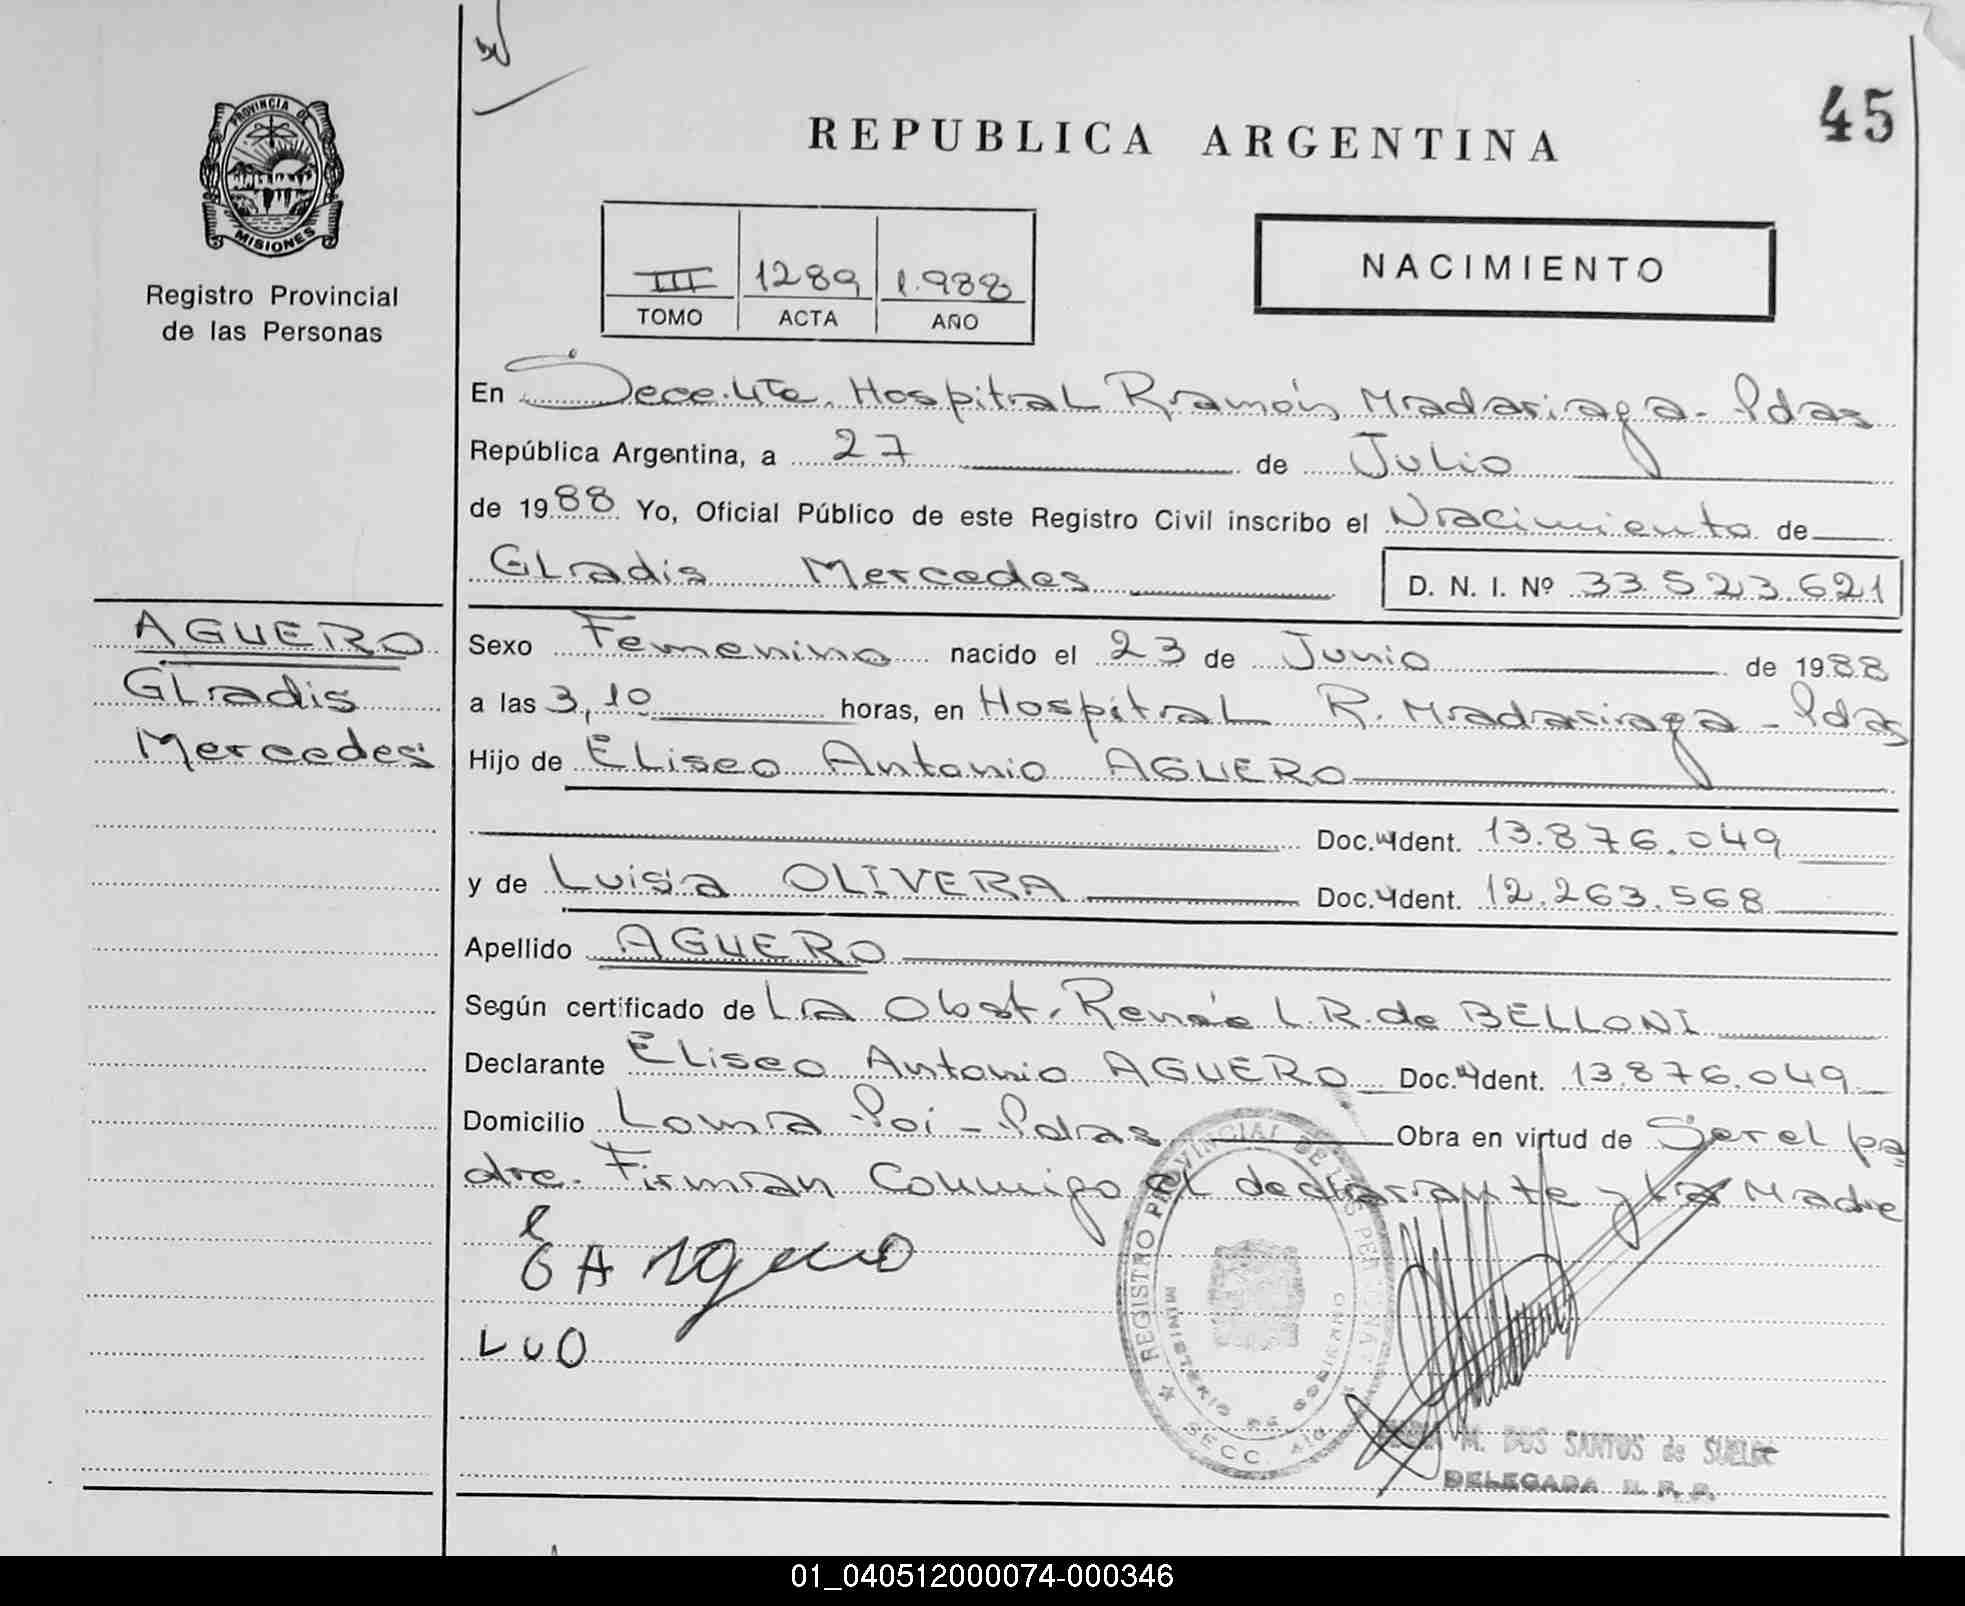 45
REPUBLICA ARGENTINA
PROVINCIA DE
MISIONES
Registro Provincial
de las Personas
III 1289 1.988
TOMO ACTA AÑO
NACIMIENTO
En Secc. 4ta. Hospital Ramón Madariaga - Pdas
República Argentina, a 27 de Julio
de 1988 Yo, Oficial Público de este Registro Civil inscribo el Nacimiento de
Gladis Mercedes D. N. I. Nº 33.523.621
AGUERO
Gladis
Mercedes
Sexo Femenino nacido el 23 de Junio de 1988
a las 3,10 horas, en Hospital R. Madariaga - Pdas
Hijo de Eliseo Antonio AGUERO
Doc. Ident. 13.876.049
y de Luisa OLIVERA Doc. Ident. 12.263.568
Apellido AGUERO
Según certificado de La Obst. Renée L.R. de BELLONI
Declarante Eliseo Antonio AGUERO Doc. Ident. 13.876.049
Domicilio Loma Poi - Pdas Obra en virtud de Ser el pa
dre. Firman Conmigo el declarante y la Madre
E A Aguero
LUO
REGISTRO PROVINCIAL DE LAS PERSONAS
MINISTERIO DE GOBIERNO
SECC. 4ta
M. DOS SANTOS de
DELEGADA R. P. P.
01_040512000074-000346